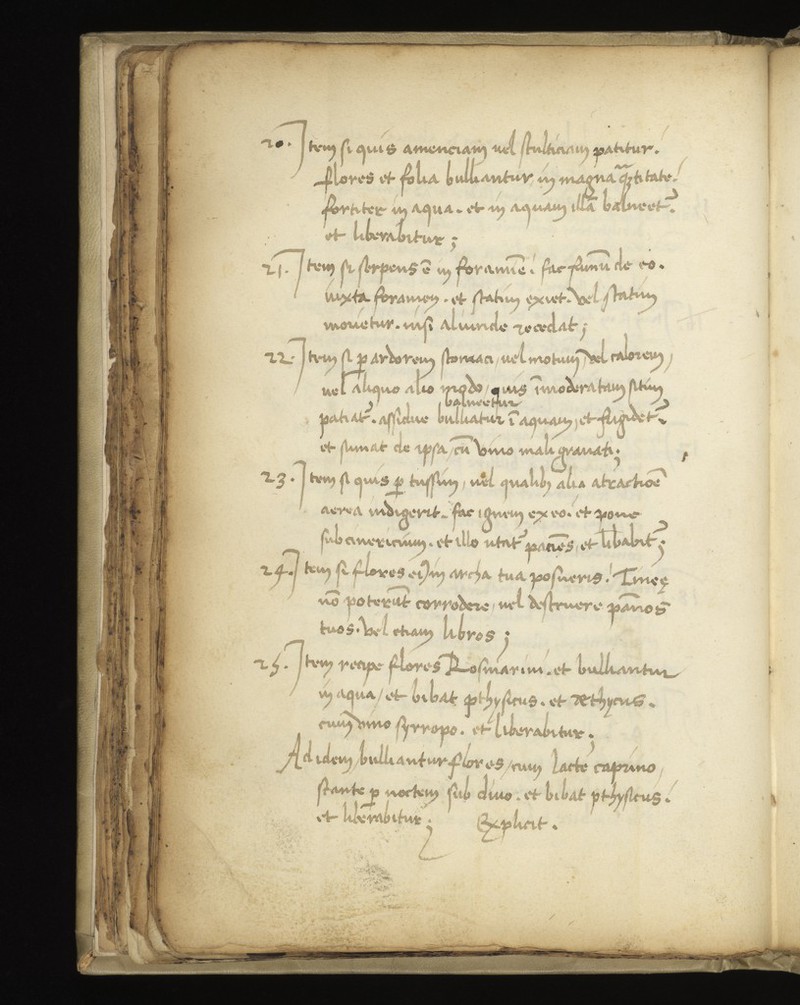 20. Item si quis amenciam vel stulticiam patitur.
flores et folia bulliantur in magna q̃ꝫtitate.
fortiter in aqua. et in aquam illā balneet᷑.
et liberabitur;
21. Item si serpens ē in foramīe. fac fumū de eo.
iuxta foramen. et statim exiet. Vel statim
mouetur. nisi aliunde recedat;
22. Item si ꝑ ardorem stomaci, vel motum, vel calorem,
vel aliquo alio modo, quis īmoderatam sitim
balneetur
patiat᷑. assidue bulliatur ī aquam, et frigidet᷑.
et sumat de ipsa, cū vino mali granati;
23. Item si quis ꝑ tussim, vel qualibꝫ alia atractiōe
aerea indigerit. fac ignem ex eo. et pone
subcinericium. et illo utat᷑ paciēs, et libābit᷑;
24. Item si flores ei) in archa tua posueris. Tineę
nō poterūt corrodere, vel destruere pānos
tuos. Vel etiam libros;
25. Item recipe flores Rosmarini. et bulliantur
in aqua, et bibat pthysicus. et ethycus.
cum vino syrropo. et liberabitur.
Ad idem, bulliantur flores, cum lacte caprino,
stante ꝑ noctem sub diuo. et bibat pthysicus.
et liberabitur; Explicit.